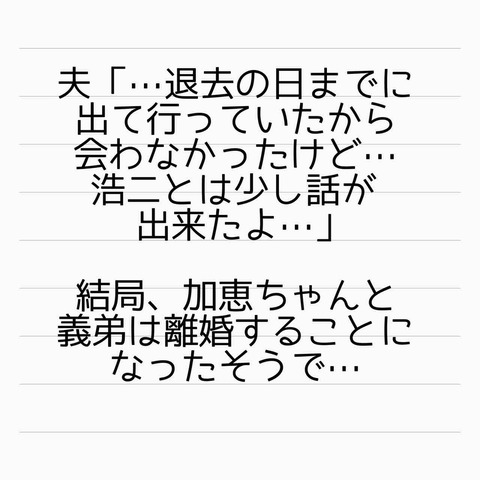 夫「…退去の日までに
出て行っていたから
会わなかったけど…
浩二とは少し話が
出来たよ…」
結局、加恵ちゃんと
義弟は離婚することに
なったそうで…